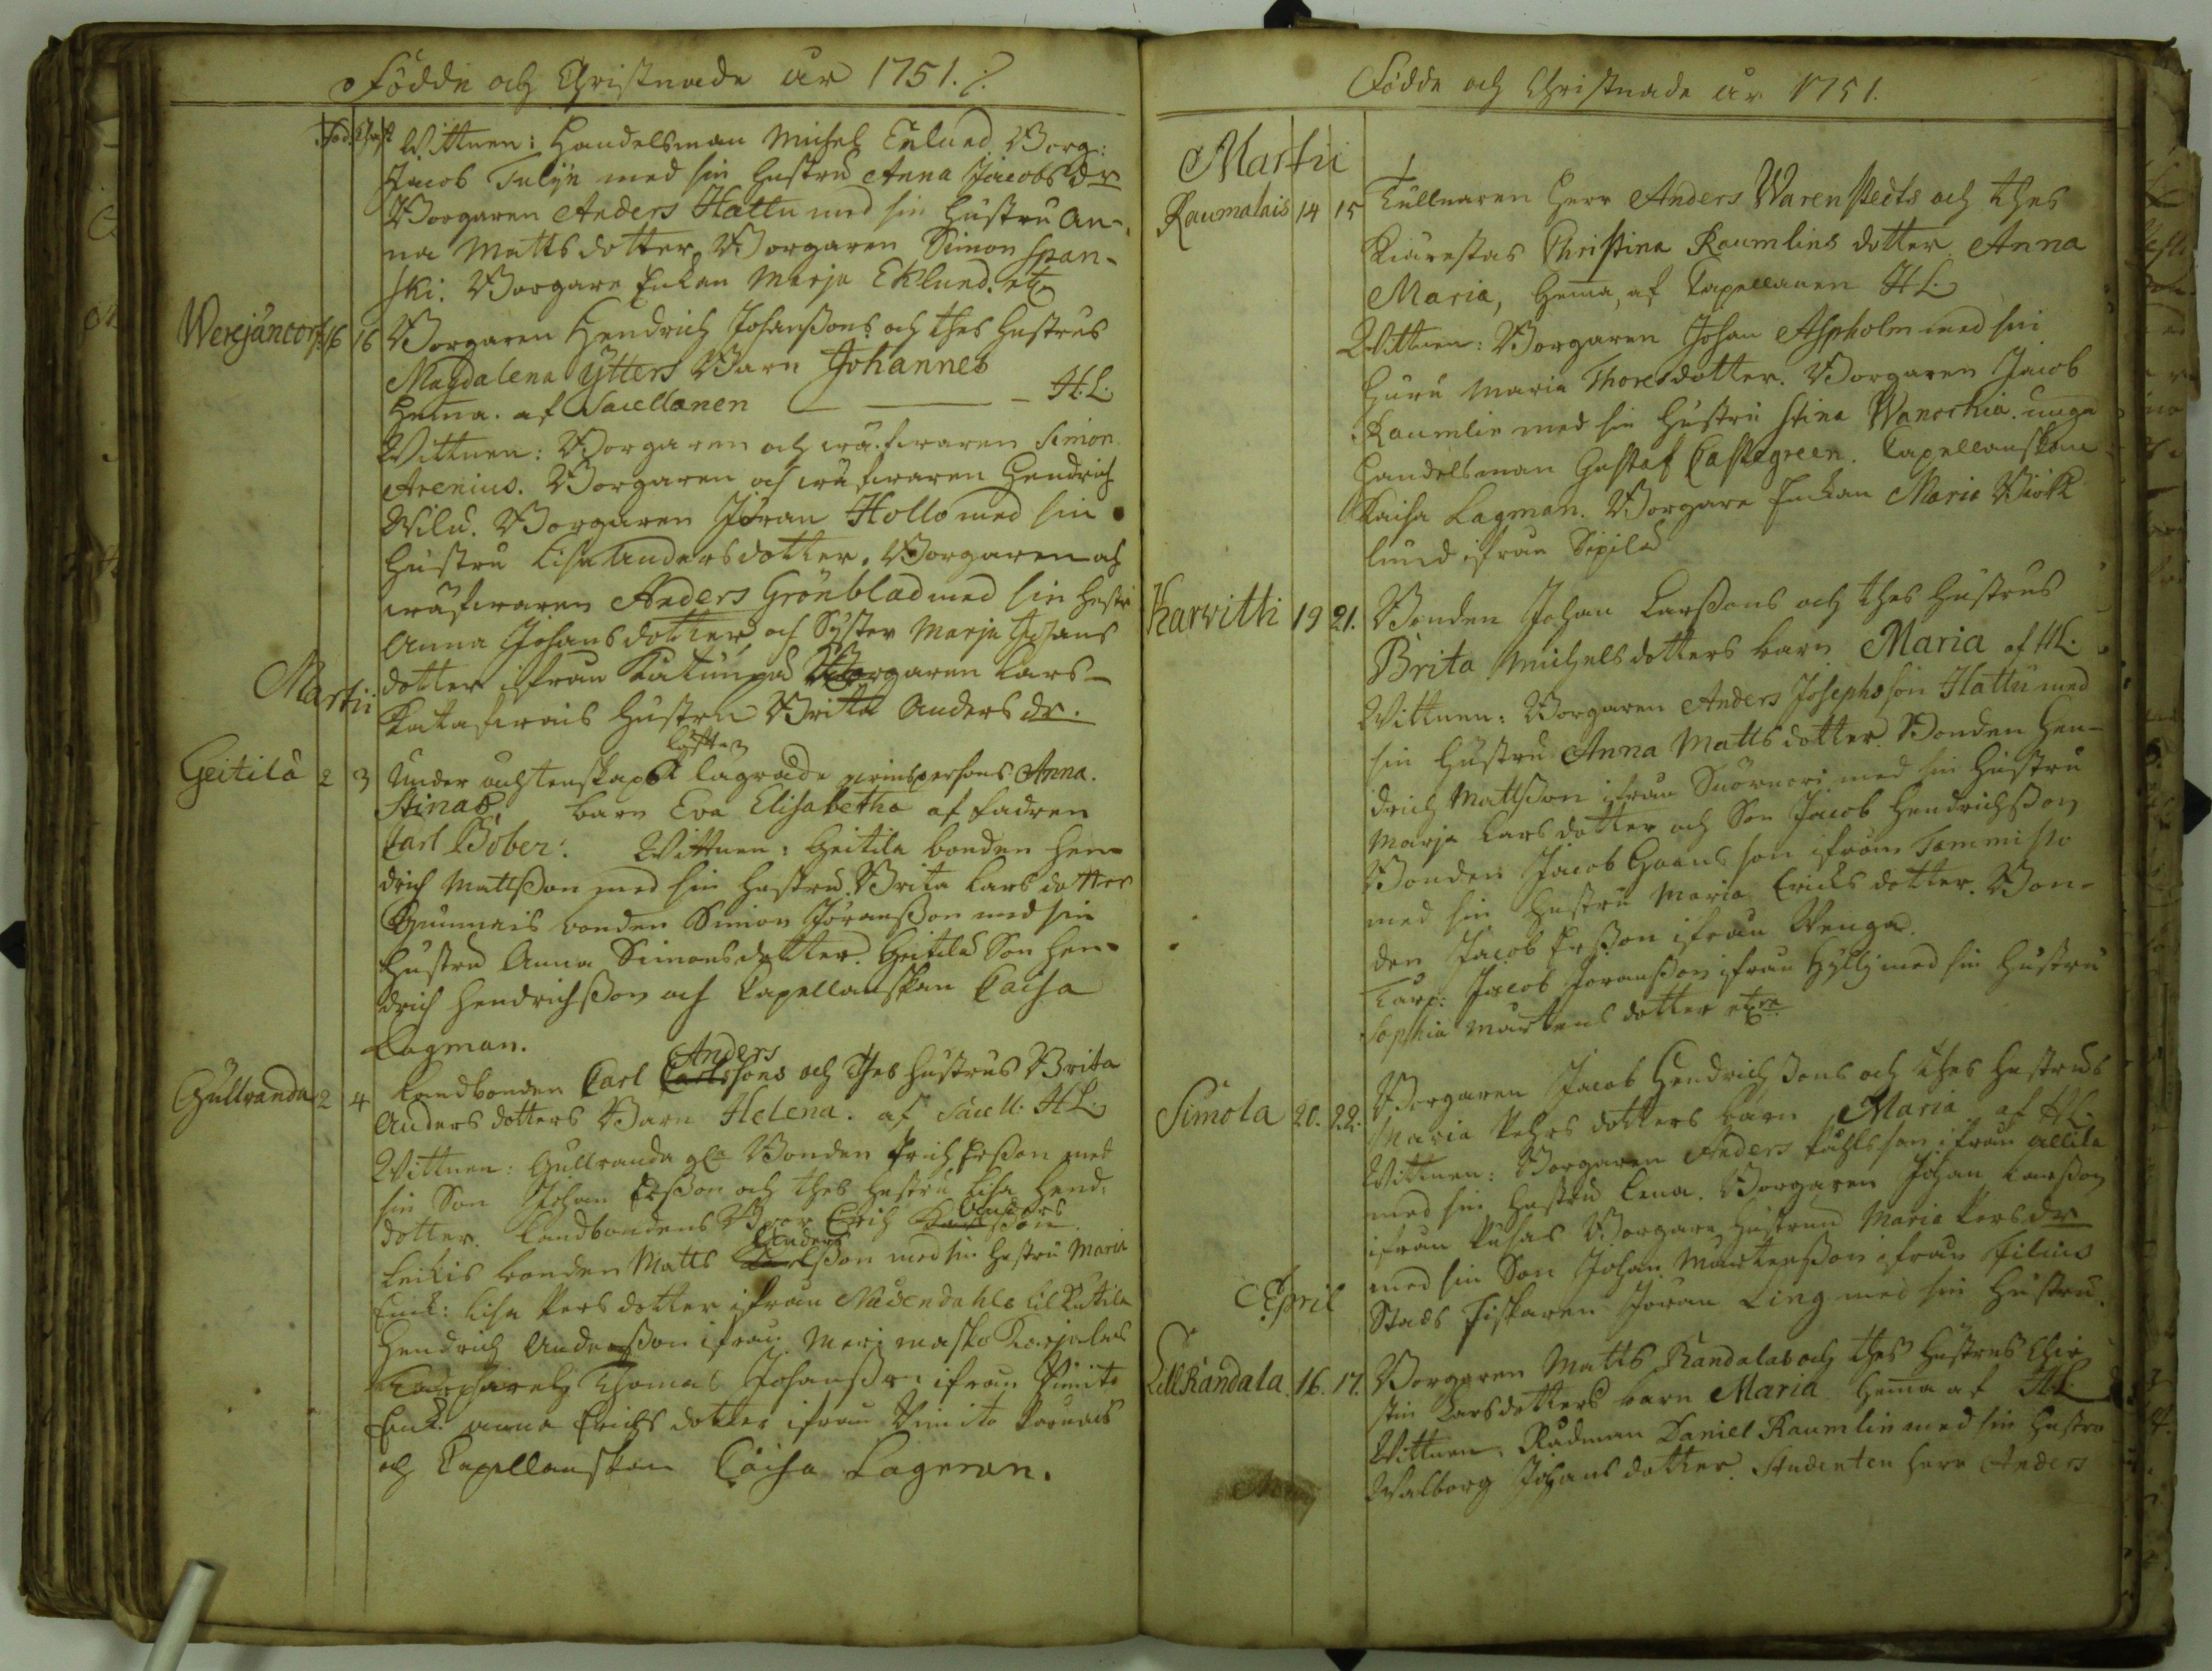 Födde och Christnade år 1751.
Föd. Chrst
Wittnen: Handelsman Michel Enlund Borg:
Jacob Tulin med sin hustru Anna Jacobsdr
Borgaren Anders Hattu med sin hustru An-
na Mattsdotter, Borgaren Simon Span-
ski. Borgare Enkan Marja Eklund. etc
Werejäntorp 16 16 Borgaren Hendrich Johanßons och thes hustrus
Magdalena Ytters Barn Johannes
hema. af Sacellanen H.L.
Wittnen: Borgaren och Simon
Arenius. Borgaren och Hendrich
Wilu. Borgaren Jöran Hollo med sin
hustru Lisa Andersdotter. Borgaren och
Anders Grönblad med sin hustru
Anna Johansdotter, och Syster Marja Johans
dotter ifrån Borgaren Lars
hustru Brita Andersdr.
Martii
Geitilä 2 3 Under ächtenskaps löfften lägrade qvinspersons Anna
Stinas barn Eva Elisabetha af fadren
Carl Böber. Wittnen: Geitila bonden Hen-
drich Mattßon med sin hustru Brita Larsdotter
Gunnais bonden Simon Jöranßon med sin
hustru Anna Simonsdotter. Geitilä Son Hen-
drich Hendrichßon och Capellanskan Caisa
Lagman.
Gullranda 2 4 Landbonden Carl Anders Carlssons och thes hustrus Brita
Andersdotters Barn Helena. af Sacell: H.L.
Wittnen: Gullranda Bonden Erich Erßon med
sin Son Johan Erßon och thes hustru Lisa Hend:
dotter. Landbondens Bror Erich Andersßon
Leikis bonden Matts Andersßon med sin hustru Maria
Enk: Lisa Persdotter ifrån Nådendahls
Hendrich Anderßon ifrån Merimasko Karjalais
Thomas Johanßon ifrån Vimito
Enk: Anna Erichsdotter ifrån Vimito
och Capellanskan Caisa Lagman.
Födde och Christnade år 1751.
Martii
Raumalais 14 15 Tullnaren Herr Anders Warenstedts och thes
Kiärestas Christina Raumlins dotter Anna
Maria, hema, af Capellanen H.L.
Wittnen: Borgaren Johan Aspholm med sin
hustru Maria Thoresdotter. Borgaren Jacob
Raumlin med sin hustru Stina Wanochia. unga
Handelsman Gustaf Castegreen. Capellanskan
Kaisa Lagman. Borgare Enkan Maria Biörk
lund ifrån Sipilä
Karvitti 19 21. Bonden Johan Larßons och thes hustrus
Brita Michelsdotters barn Maria af H.L.
Wittnen: Borgaren Anders Josephsson Hattu med
sin hustru Anna Mattsdotter. Bonden Hen-
drich Mattßon ifrån Suorwori med sin hustru
Marja Larsdotter och Son Jacob Hendrichßon
Bonden Jacob Göransson ifrån Tammisto
med sin hustru Maria Erichsdotter. Bon-
den Jacob Erßon ifrån Wenga.
Jacob Jöranßon ifrån Hylly med sin hustru
Sophia Mårtensdotter etc
Simola 20. 22. Borgaren Jacob Hendrichßons och thes hustrus
Maria Pehrsdotters barn Maria af H.L.
Wittnen: Borgaren Anders Påhlsson ifrån Allila
med sin hustru Lena. Borgaren Johan Larßon
ifrån Borgare hustrun Maria Persdr
med sin Son Johan Mårtenßon ifrån Filius
Stads fiskaren Jöran Ling med sin hustru.
April
Lill Randala. 16. 17. Borgaren Matts Randalas och thes hustrus Chir
stin Larsdotters barn Maria hema af H.L.
Wittnen, Rådman Daniel Raumlin med sin hustru
Walborg Johansdotter. Studenten herr Anders